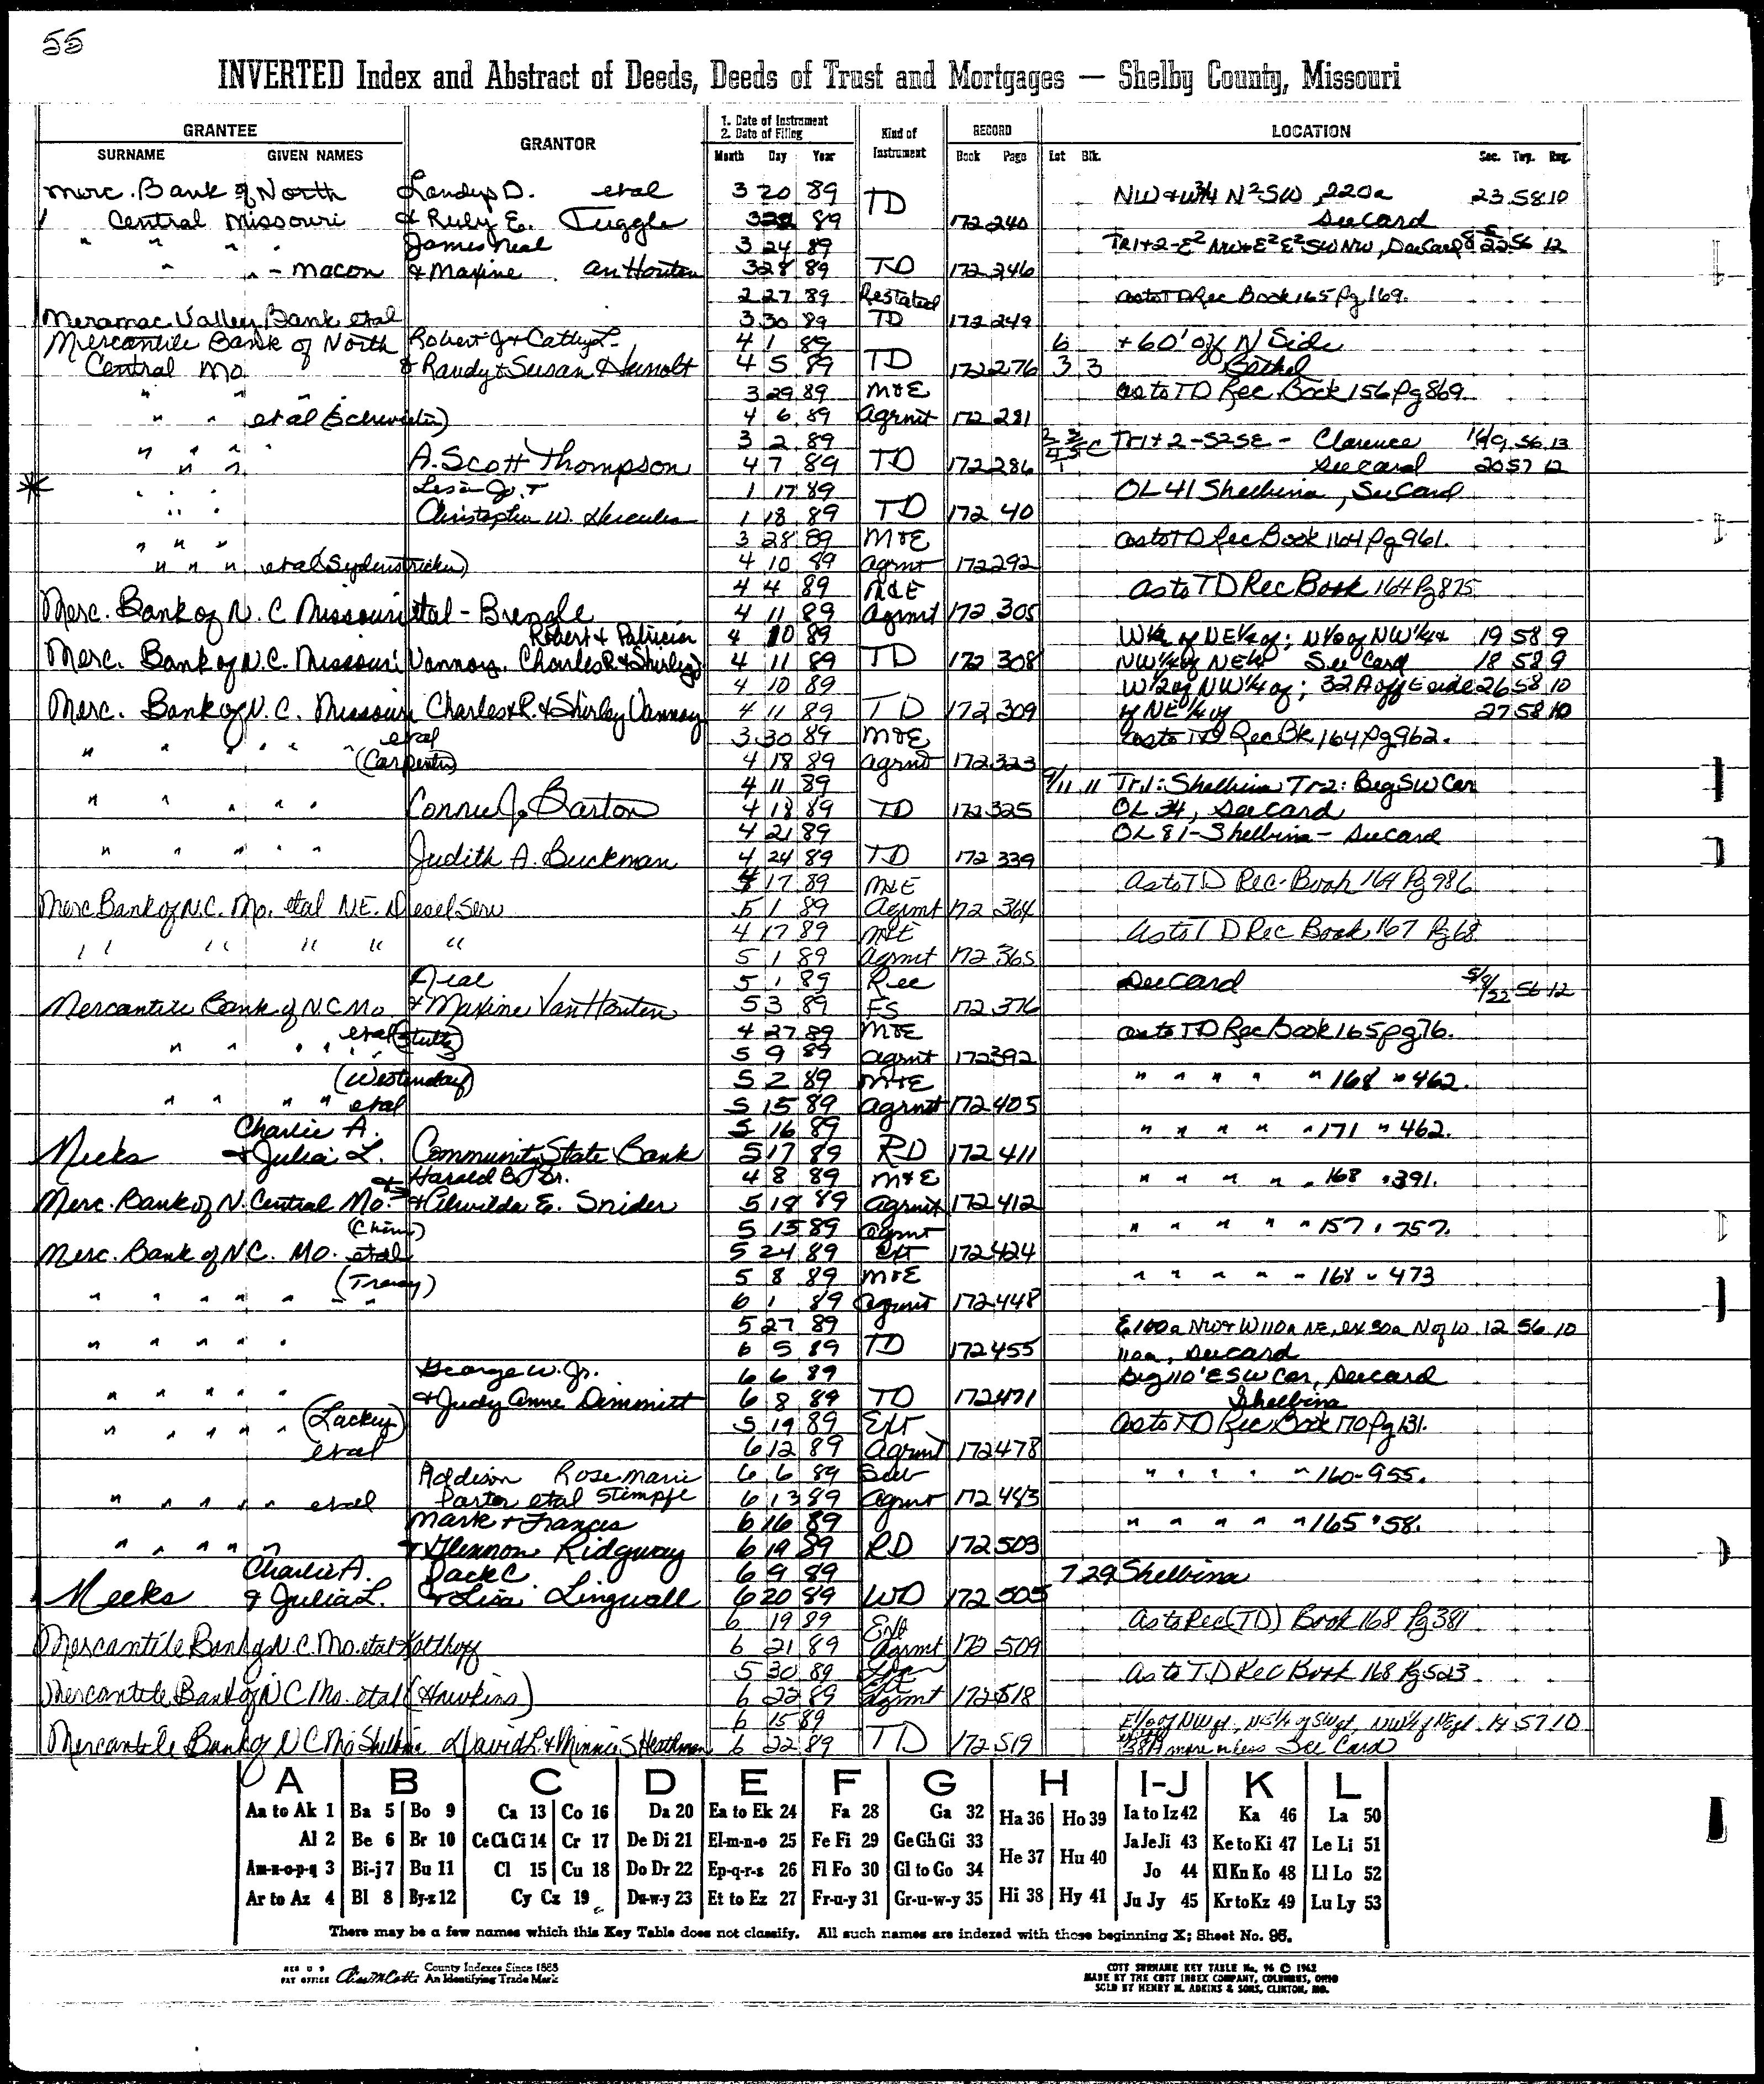 55
INVERTED Index and Abstract of Deeds, Deeds of Trust and Mortgages — Shelby County, Missouri
GRANTEE GRANTOR 1. Date of Instrument 2. Date of Filing Kind of Instrument RECORD LOCATION
SURNAME GIVEN NAMES Month Day Year Book Page Lot Blk. Sec. Twp. Rng.
Merc. Bank of North Landys D. etal 3 20 89 TD NW & W 3/4 N2 SW, 220a 23 58 10
Central Missouri & Ruby E. Tuggle 3 89 172 240 See Card
" " " " James Neal 3 24 89 Tr 1+2-E2 NW & E2 E2 SW NW, See Card 22 56 12
" " - Macon & Maxine an Houten 3 28 89 TD 172 246
2 27 89 Restated as to TD Rec Book 165 Pg 169.
Meramac Valley Bank etal 3 30 89 TD 172 249
Mercantile Bank of North Robert J & Cathy L. 4 1 89 6 + 60' off N Side
Central Mo. & Randy & Susan 4 5 89 TD 172 276 3 3 Bethel
" " " 3 29 89 M&E as to TD Rec. Book 156 Pg 869
" " etal 4 6 89 Agrmt 172 281
" " " " 3 2 89 Tr 1 + 2 - S2SE - Clarence 56 13
" " A. Scott Thompson 4 7 89 TD 172 286 See Card 20 57 12
* " " " 1 17 89 OL 41 Shelbina, See Card
" " Christopher W. Hercules 1 18 89 TD 172 40
" " " 3 28 89 M&E as to TD Rec Book 164 Pg 961.
" " " etal (Sydenstricker) 4 10 89 Agrmt 172 292
4 4 89 M&E As to TD Rec Book 164 Pg 875
Merc. Bank of N. C Missouri etal - Brengle 4 11 89 Agrmt 172 305
Robert & Patricia 4 10 89 W½ of NE¼ of; N½ of NW¼ & 19 58 9
Merc. Bank of N.C. Missouri Vannoy. Charles R & Shirley 4 11 89 TD 172 308 NW¼ of NE¼ See Card 18 58 9
4 10 89 W½ of NW¼ of; 32A off E side 26 58 10
Merc. Bank of N. C. Missouri Charles R. & Shirley Vannoy 4 11 89 TD 172 309 of NE¼ of 27 58 10
" " " " " etal 3 30 89 M&E as to TD Rec Bk 164 Pg 962.
(Carpenter) 4 18 89 Agrmt 172 323
4 11 89 9/11 11 Tr. 1: Shelbina Tr 2: Beg SW Cor
" " " " " Connie J. Barton 4 18 89 TD 172 325 OL 34, See Card
4 21 89 OL 81 - Shelbina - See Card
" " " " " Judith A. Buckman 4 24 89 TD 172 339
4 17 89 M&E As to TD Rec. Book 164 Pg 986
Merc Bank of N.C. Mo. etal N.E. Diesel Serv 5 1 89 Agrmt 172 364
4 17 89 M&E As to TD Rec Book 167 Pg 68
" " " " " 5 1 89 Agrmt 172 365
Neal 5 1 89 Rec See Card 56 12
Mercantile Bank of N.C Mo & Maxine Van Houten 5 3 89 FS 172 376
etal 4 27 89 M&E as to TD Rec Book 165 pg 76.
" " " " " 5 9 89 Agrmt 172 392
5 2 89 M&E " " " " " 168 " 462.
" " " " etal 5 15 89 Agrmt 172 405
Charlie A. 5 16 89 " " " " " 171 " 462.
Meeks & Julia L. Community State Bank 5 17 89 RD 172 411
Harold B. Sr. 4 8 89 M&E " " " " " 168 " 391.
Merc. Bank of N. Central Mo. & Alwilda E. Snider 5 18 89 Agrmt 172 412
5 15 89 Agrmt " " " " " 157 " 757.
Merc. Bank of N.C. Mo. etal 5 24 89 Ext 172 424
5 8 89 M&E " " " " " 168 " 473
" " " " " " " 6 1 89 Agrmt 172 448
5 27 89 E 100a NW & W 110a NE, ex 30a N of W. 12 56 10
" " " " " 6 5 89 TD 172 455 110a, See Card
George W. Jr. 6 6 89 Beg 110' E SW Cor, See Card
" " " " " & Judy Anne Dimmitt 6 8 89 TD 172 471 Shelbina
" " " " " (Lackey) 5 19 89 Ext As to TD Rec Book 170 Pg 131.
etal 6 12 89 Agrmt 172 478
Addison Rosemarie 6 6 89 " " " " " 160-955.
" " " " " etal Porter etal Stimpfe 6 13 89 Agrmt 172 483
Mark & Frances 6 16 89 " " " " " 165 " 58.
" " " " " & Glennon Ridgway 6 19 89 RD 172 503
Charlie A. Jack C. 6 9 89 7 29 Shelbina
Meeks & Julia L. & Lisa Lingwall 6 20 89 WD 172 505
6 19 89 Ext As to Rec (TD) Book 168 Pg 381
Mercantile Bank of N. C. Mo. etal Kolthoff 6 21 89 Agrmt 172 509
5 30 89 As to T.D Rec Book 168 Pg 523
Mercantile Bank of N C Mo. etal (Hawkins) 6 22 89 Agrmt 172 518
6 15 89 E½ of NW¼, NE¼ of SW¼, NW¼ of 14 57 10
Mercantile Bank of N C Mo Shelbina David L. & Minnie S Heathman 6 22 89 TD 172 519 38A more or less See Card
A B C D E F G H I-J K L
Aa to Ak 1 Ba 5 Bo 9 Ca 13 Co 16 Da 20 Ea to Ek 24 Fa 28 Ga 32 Ha 36 Ho 39 Ia to Iz 42 Ka 46 La 50
Al 2 Be 6 Br 10 Ce Ch Ci 14 Cr 17 De Di 21 El-m-n-o 25 Fe Fi 29 Ge Gh Gi 33 He 37 Hu 40 Ja Je Ji 43 Ke to Ki 47 Le Li 51
Am-n-o-p-q 3 Bi-j 7 Bu 11 Cl 15 Cu 18 Do Dr 22 Ep-q-r-s 26 Fl Fo 30 Gl to Go 34 Jo 44 Kl Kn Ko 48 Ll Lo 52
Ar to Az 4 Bl 8 By-z 12 Cy Cz 19 Du-w-y 23 Et to Ez 27 Fr-u-y 31 Gr-u-w-y 35 Hi 38 Hy 41 Ju Jy 45 Kr to Kz 49 Lu Ly 53
There may be a few names which this Key Table does not classify. All such names are indexed with those beginning X; Sheet No. 96.
REG U S PAT OFFICE County Indexes Since 1888 An Identifying Trade Mark
COTT SURNAME KEY TABLE No. 96 © 1962
MADE BY THE COTT INDEX COMPANY, COLUMBUS, OHIO
SOLD BY HENRY M. ADKINS & SONS, CLINTON, MO.